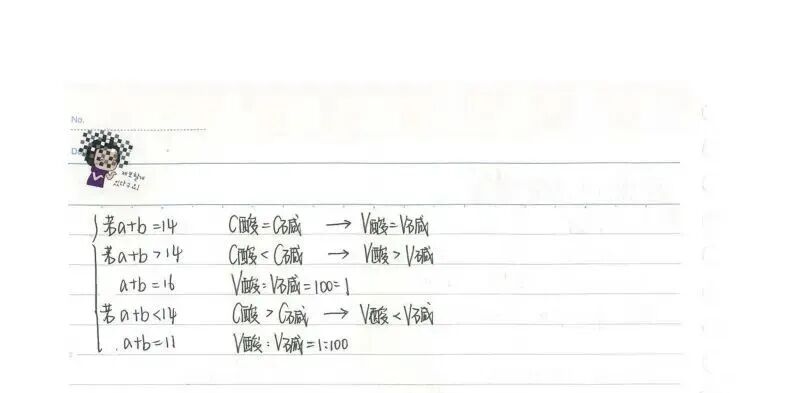 No.
若a+b=14 C酸=C碱 → V酸=V碱
若a+b>14 C酸<C碱 → V酸>V碱
a+b=16 V酸:V碱=100=1
若a+b<14 C酸>C碱 → V酸<V碱
a+b=11 V酸:V碱=1:100